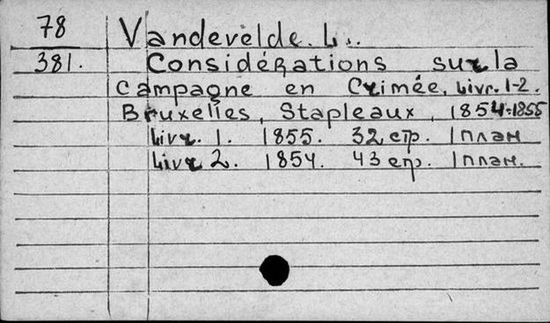 78 Vandevelde. L..
381. Considérations sur la
campagne en Crimée, Livr. 1-2.
Bruxelles, Stapleaux, 1854-1855
Livr. 1. 1855. 32 стр. 1 план
Livr. 2. 1854. 43 стр. 1 план.